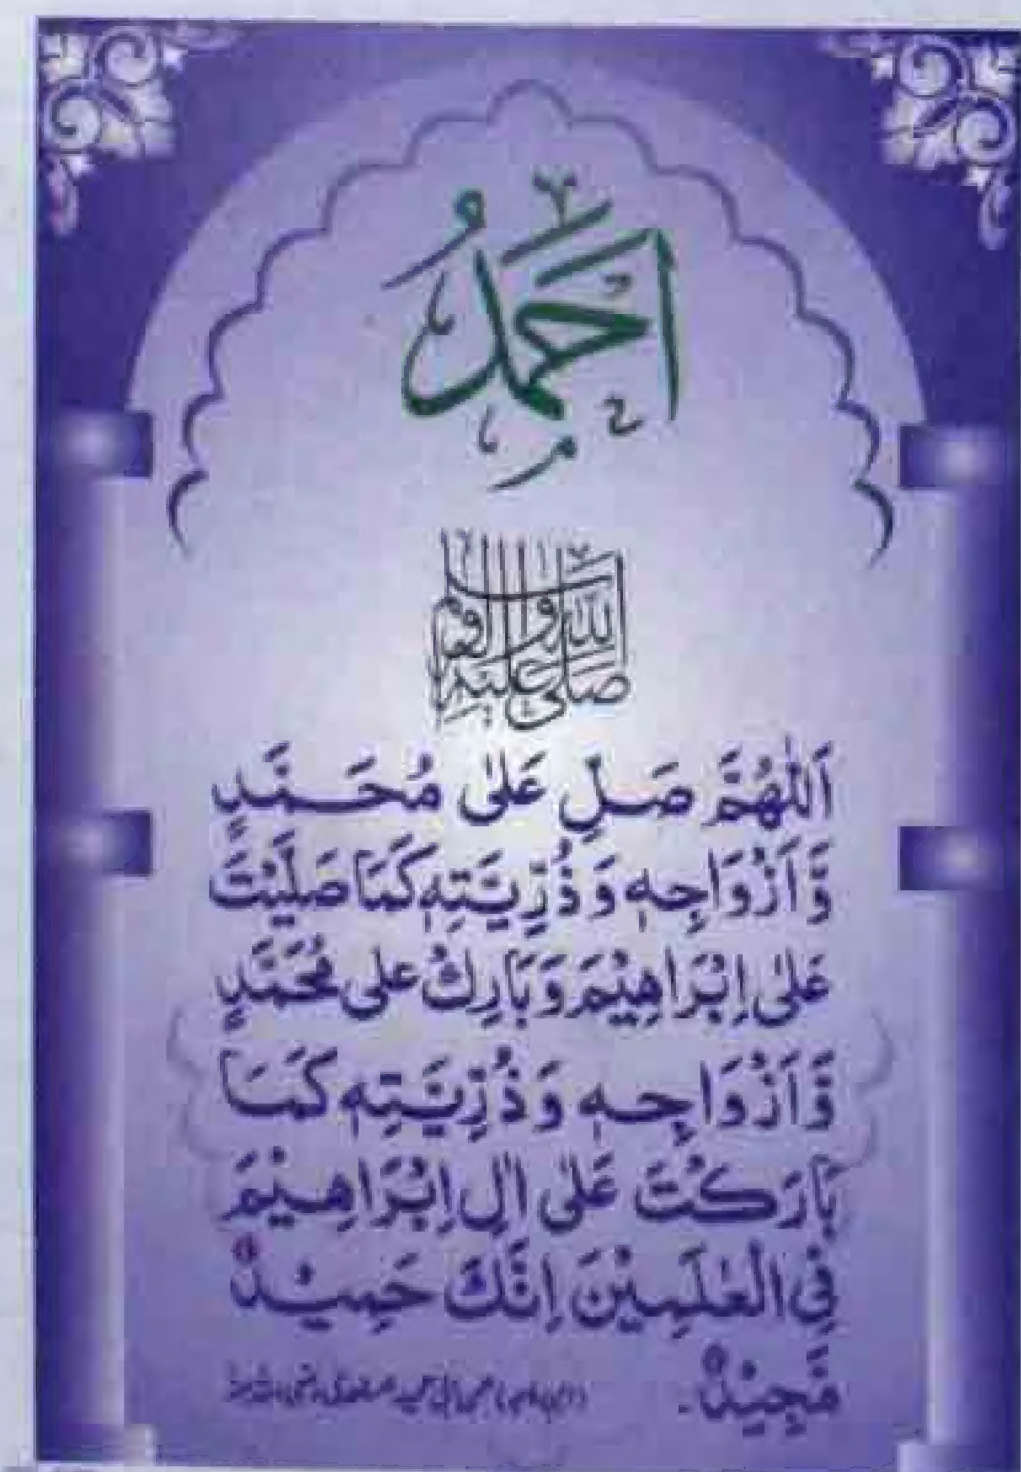 اَحْمَدُ
صَلَّى اللّٰهُ عَلَيْهِ وَاٰلِهٖ وَسَلَّمَ
اَللّٰهُمَّ صَلِّ عَلٰى مُحَمَّدٍ
وَّاَزْوَاجِهٖ وَذُرِّيَّتِهٖ كَمَا صَلَّيْتَ
عَلٰى اِبْرَاهِيْمَ وَبَارِكْ عَلٰى مُحَمَّدٍ
وَّاَزْوَاجِهٖ وَذُرِّيَّتِهٖ كَمَا
بَارَكْتَ عَلٰى اٰلِ اِبْرَاهِيْمَ
فِى الْعٰلَمِيْنَ اِنَّكَ حَمِيْدٌ
مَّجِيْدٌ.